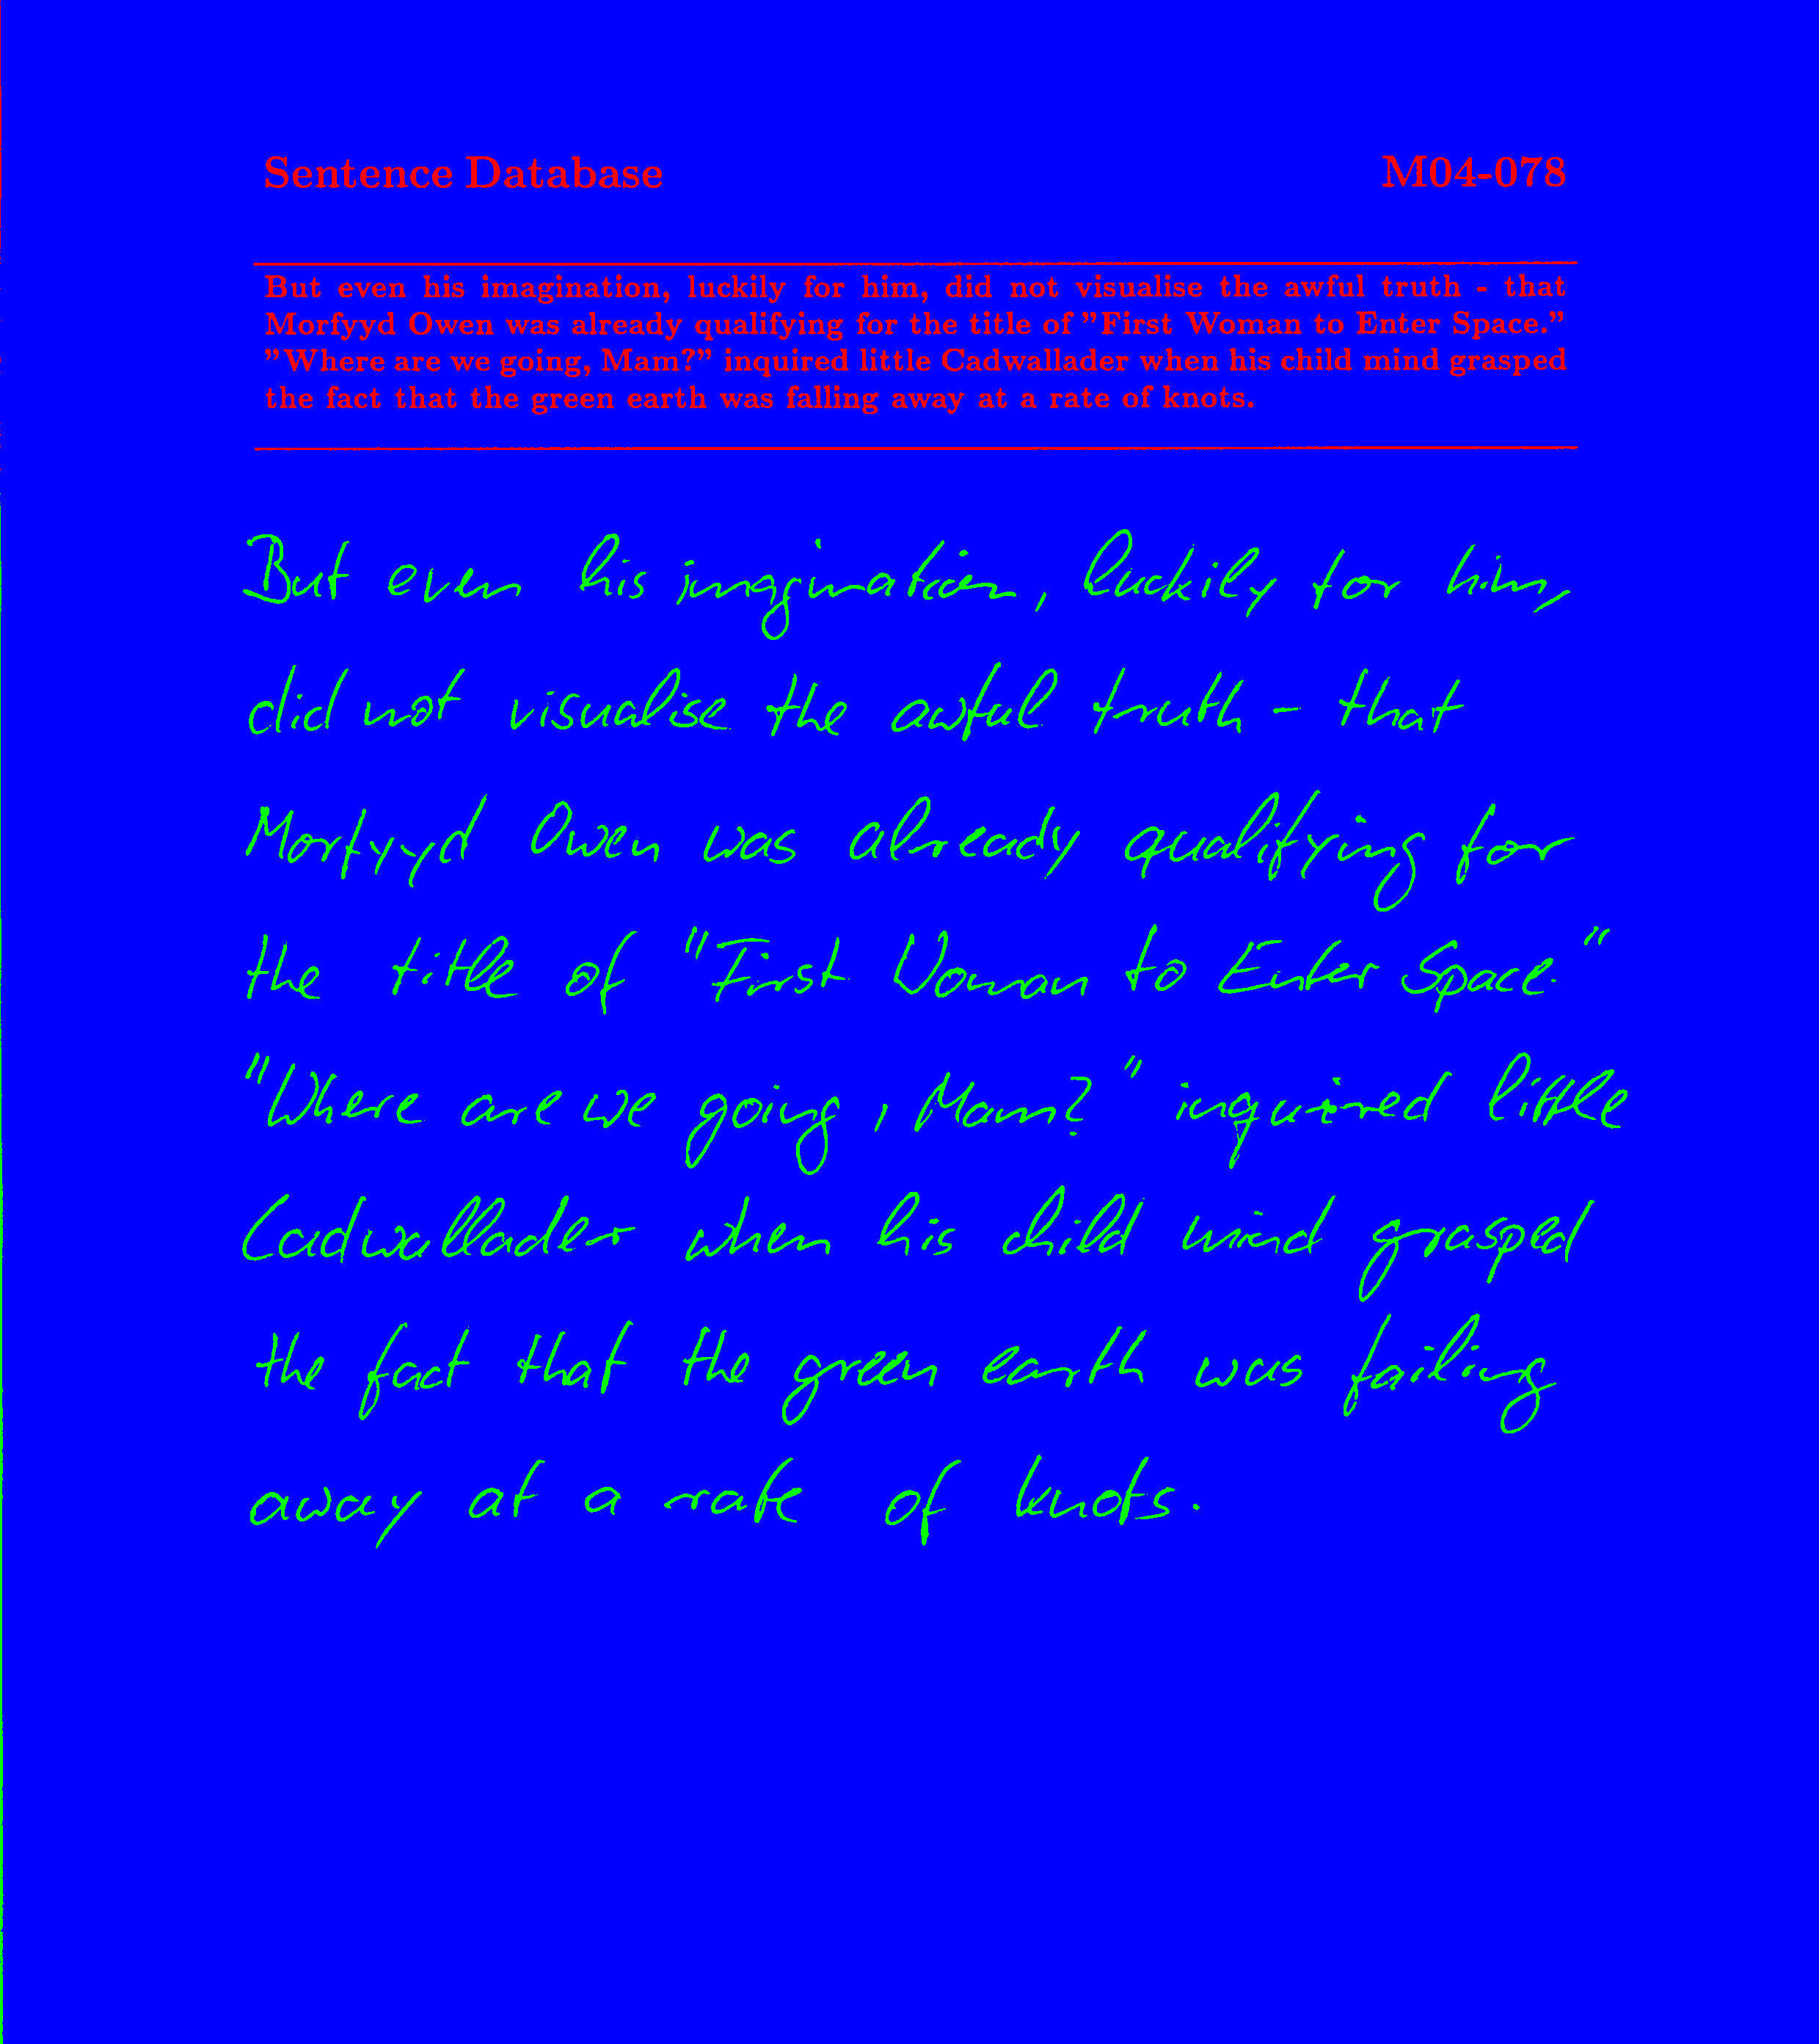 Sentence Database M04-078
But even his imagination, luckily for him, did not visualise the awful truth - that
Morfyyd Owen was already qualifying for the title of "First Woman to Enter Space."
"Where are we going, Mam?" inquired little Cadwallader when his child mind grasped
the fact that the green earth was falling away at a rate of knots.
But even his imagination, luckily for him,
did not visualise the awful truth - that
Morfyyd Owen was already qualifying for
the title of "First Woman to Enter Space."
"Where are we going, Mam?" inquired little
Cadwallader when his child mind grasped
the fact that the green earth was failing
away at a rate of knots.